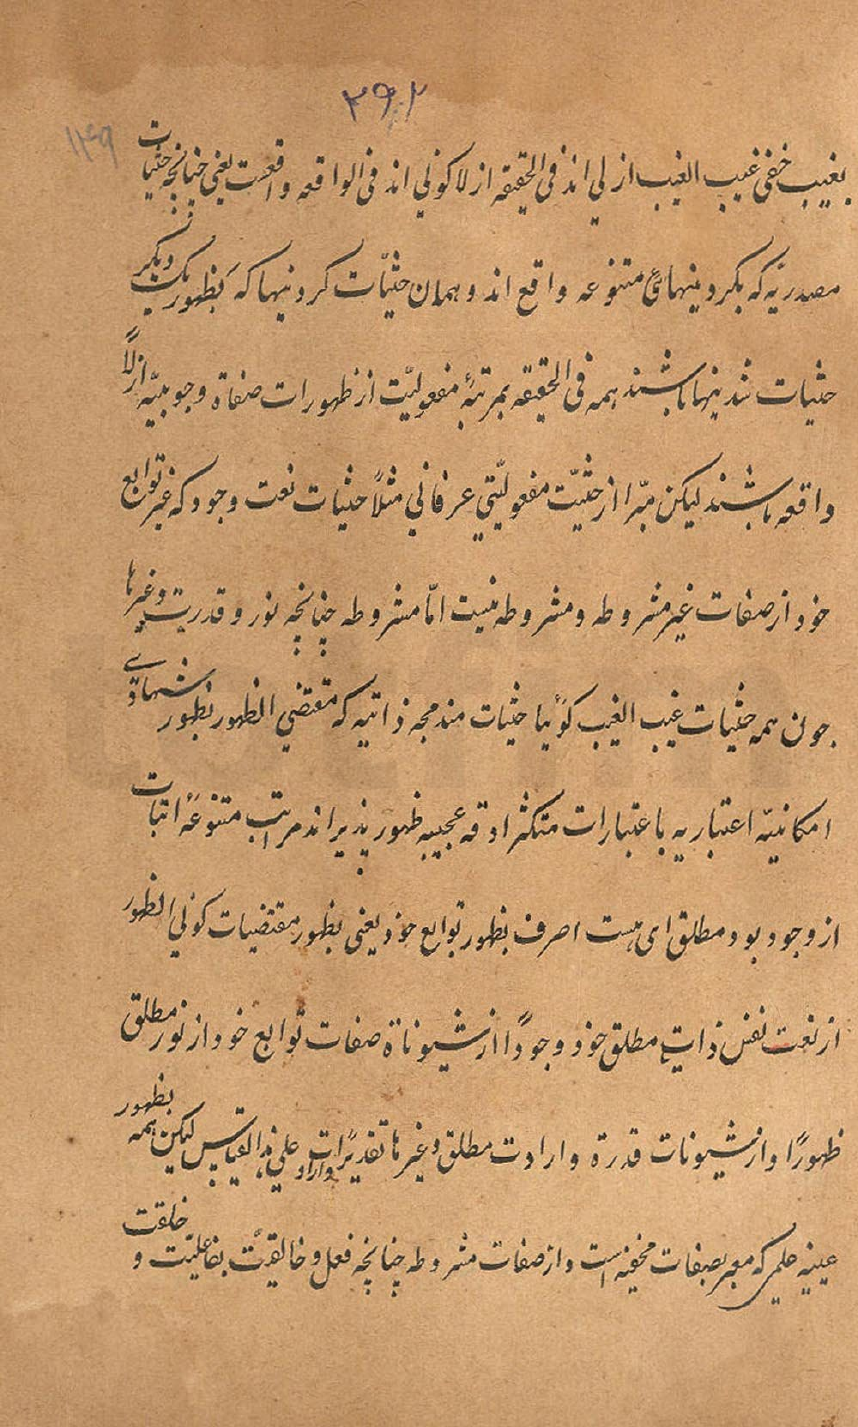 ۳۹۲
۱۴۹
بغیب خفی غیب الغیب ازلی اند فی الحقیقه از لا کونی اند فی الواقعه واقعست یعنی چنانچه حثیات
مصدریّه که بکردینهائ متنوعه واقع اند و همان حثیّات کردنیها که بظهور یک دیگر
حثیات شدینها باشند همه فی الحقیقه بمرتبهٔ مفعولیّت از ظهورات صفاة وجوبیّه ازلاً
واقعه باشند لیکن مبّرا از حثیّت مفعولیّتی عرفانی مثلاً حثیات نعت وجود که غیر توابع
خود از صفات غیر مشروطه و مشروطه نیست امّا مشروطه چنانچه نور و قدرت وغیرها
چون همه حثیات غیب الغیب کوئیا حثیات مندمجه ذاتیه که مقتضی الظهور بظهور شهادتے
امکانیّه اعتباریه باعتبارات متکثر ادقه عجیبه ظهور پذیر اند مراتب متنوعهٔ اثبات
از وجود بود مطلق ای هست اصرف بظهور توابع خود یعنی بظهور مقتضیات کونی الظهور
از نعت نفس ذات مطلق خود وجوداً از شیوناة صفات توابع خود از نور مطلق
ظهورًا و از شیونات قدرة و ارادت مطلق وغیرها تقدیرًا و ارادت علی هذا القیاس لیکن همه بظهور
عینیه علمی که معبر بصفات مخفیه است و از صفات مشروطه چنانچه فعل و خالقیّت بفاعلیّت و خلقت